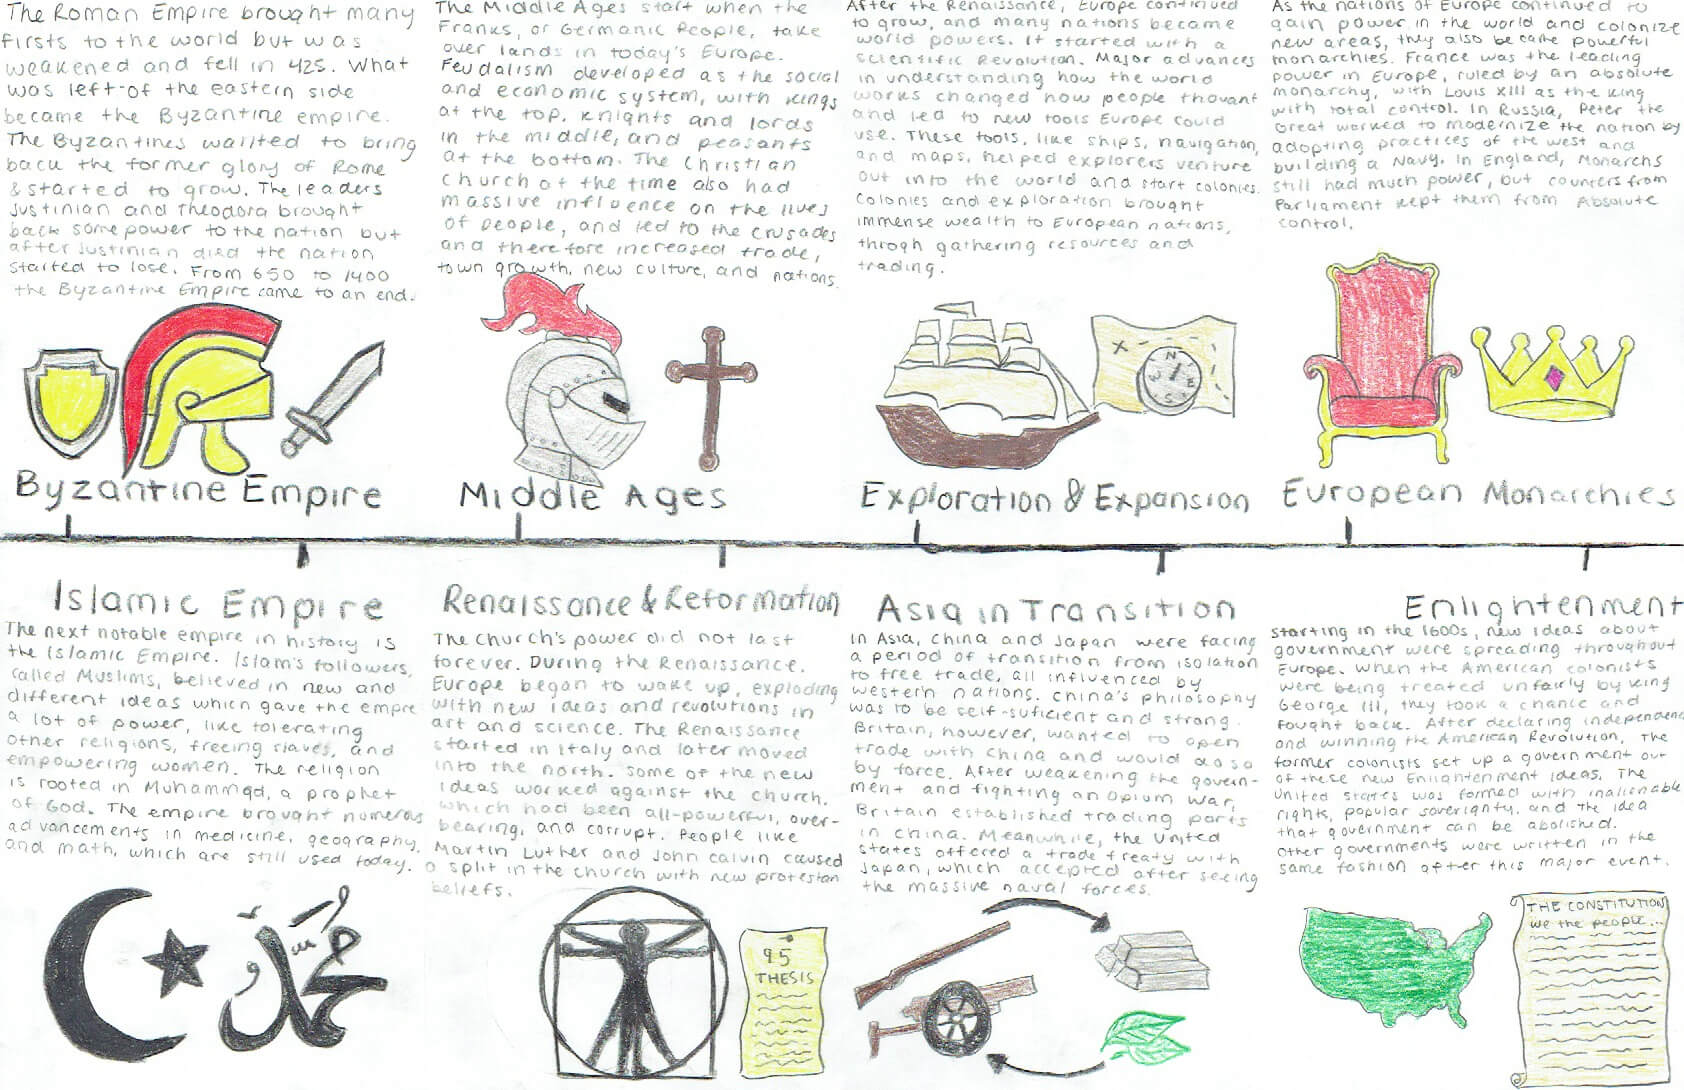 The Roman Empire brought many
firsts to the world but was
weakened and fell in 425. What
was left of the eastern side
became the Byzantine empire.
The Byzantines wanted to bring
back the former glory of Rome
& started to grow. The leaders
Justinian and Theodora brought
back some power to the nation but
after Justinian died the nation
started to lose. From 650 to 1400
the Byzantine Empire came to an end.
Byzantine Empire
The Middle Ages start when the
Franks, or Germanic People, take
over lands in today's Europe.
Feudalism developed as the social
and economic system, with kings
at the top, knights and lords
in the middle, and peasants
at the bottom. The Christian
church at the time also had
massive influence on the lives
of people, and led to the crusades
and therefore increased trade,
town growth, new culture, and nations.
Middle Ages
After the Renaissance, Europe continued
to grow, and many nations became
world powers. It started with a
Scientific Revolution. Major advances
in understanding how the world
works changed how people thought
and led to new tools Europe could
use. These tools, like ships, navigation,
and maps, helped explorers venture
out into the world and start colonies.
Colonies and exploration brought
immense wealth to European nations,
throgh gathering resources and
trading.
N
W
E
S
Exploration & Expansion
As the nations of Europe continued to
gain power in the world and colonize
new areas, they also became powerful
monarchies. France was the leading
power in Europe, ruled by an absolute
monarchy, with Louis XIII as the king
with total control. In Russia, Peter the
Great worked to modernize the nation by
adopting practices of the west and
building a Navy. In England, Monarchs
still had much power, but counters from
Parliament kept them from Absolute
control.
European Monarchies
Islamic Empire
The next notable empire in history is
the Islamic Empire. Islam's followers,
called Muslims, believed in new and
different ideas which gave the empire
a lot of power, like tolerating
other religions, freeing slaves, and
empowering women. The religion
is rooted in Muhammad, a prophet
of God. The empire brought numerous
advancements in medicine, geography,
and math, which are still used today.
محمد
Renaissance & Reformation
The Church's power did not last
forever. During the Renaissance,
Europe began to wake up, exploding
with new ideas and revolutions in
art and science. The Renaissance
started in Italy and later moved
into the north. Some of the new
ideas worked against the church,
which had been all-powerful, over-
bearing, and corrupt. People like
Martin Luther and John Calvin caused
a split in the church with new protestan
beliefs.
95
THESIS
Asia in Transition
In Asia, China and Japan were facing
a period of transition from isolation
to free trade, all influenced by
western nations. China's philosophy
was to be self-suficient and strong.
Britain, however, wanted to open
trade with China and would do so
by force. After weakening the govern-
ment and fighting an Opium War,
Britain established trading ports
in China. Meanwhile, the United
States offered a trade treaty with
Japan, which accepted after seeing
the massive naval forces.
Enlightenment
Starting in the 1600s, new ideas about
government were spreading throughout
Europe. When the American colonists
were being treated unfairly by King
George III, they took a chance and
fought back. After declaring independenc
and winning the American Revolution, the
former colonists set up a government out
of these new Enlightenment ideas. The
United States was formed with inalienable
rights, popular soverignty, and the idea
that government can be abolished.
Other governments were written in the
same fashion after this major event.
THE CONSTITUTION
We the people...